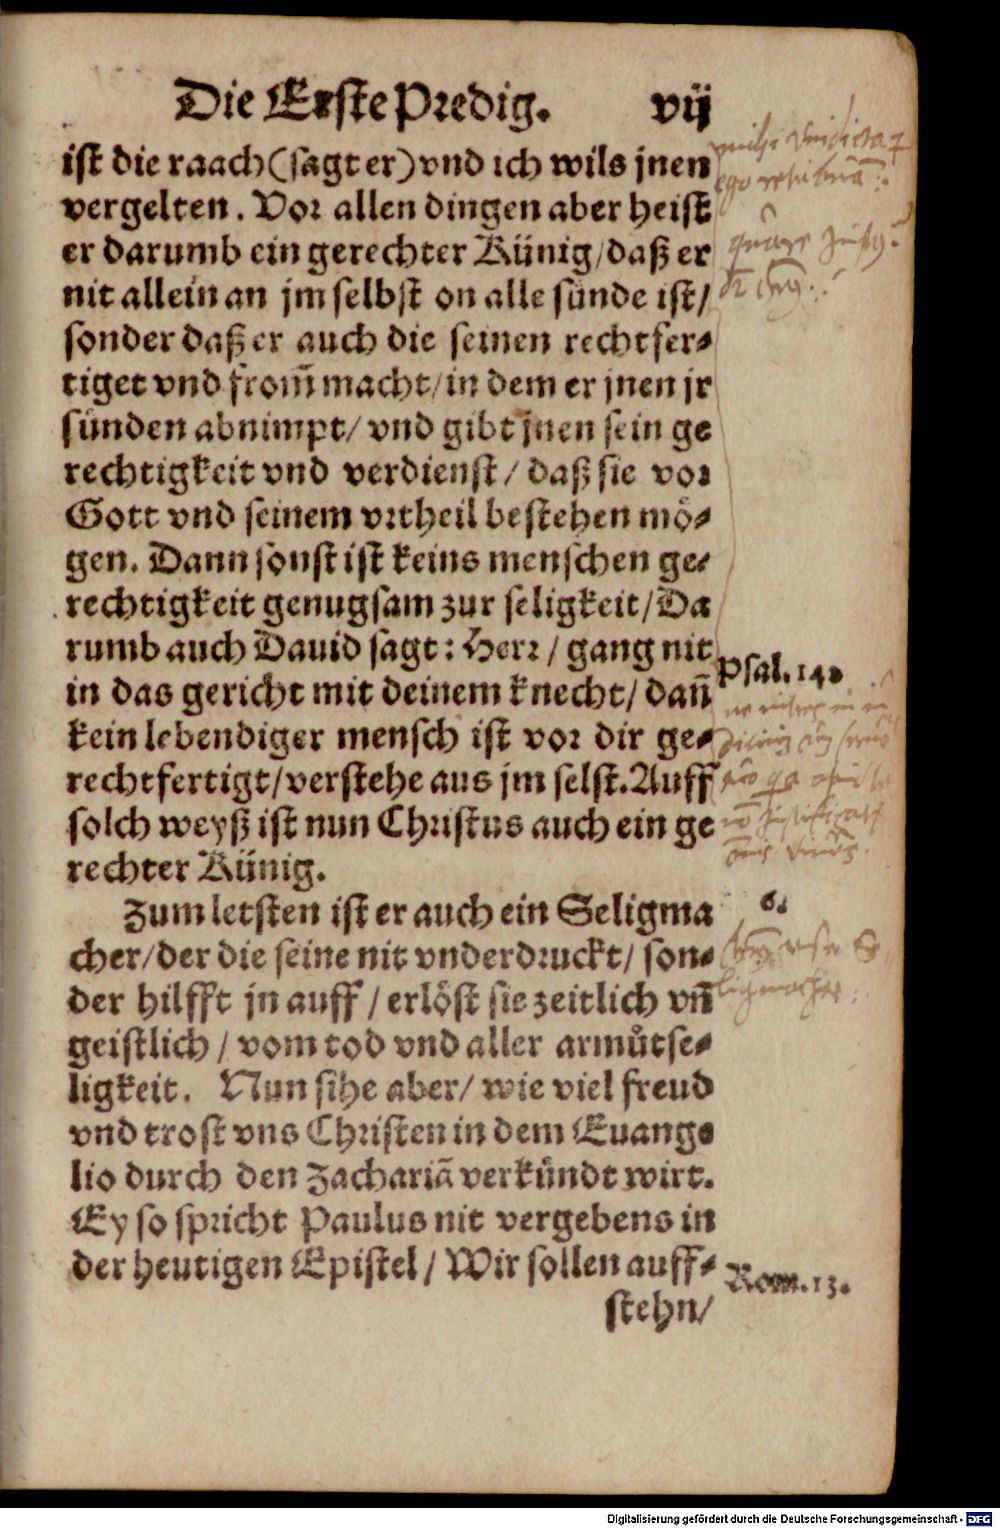 Die Erste Predig. vij
ist die raach (sagt er) vnd ich wils jnen
vergelten. Vor allen dingen aber heist
er darumb ein gerechter Künig/ daß er
nit allein an jm selbst on alle sünde ist/
sonder daß er auch die seinen rechtfer⸗
tiget vnd from̃ macht/ in dem er jnen jr
sünden abnimpt/ vnd gibt jnen sein ge
rechtigkeit vnd verdienst/ daß sie vor
Gott vnd seinem vrtheil bestehen mö⸗
gen. Dann sonst ist keins menschen ge⸗
rechtigkeit genugsam zur seligkeit/ Da
rumb auch Dauid sagt: Herr/ gang nit
Psal. 142
in das gericht mit deinem knecht/ dañ
kein lebendiger mensch ist vor dir ge⸗
rechtfertigt/ verstehe aus jm selst. Auff
solch weyß ist nun Christus auch ein ge
rechter Künig.
Zum letsten ist er auch ein Seligma
6.
cher/ der die seine nit vnderdruckt/ son⸗
der hilfft jn auff/ erlöst sie zeitlich vñ
ligmacher
geistlich/ vom tod vnd aller armůtse⸗
ligkeit. Nun sihe aber/ wie viel freud
vnd trost vns Christen in dem Euange
lio durch den Zachariã verkündt wirt.
Ey so spricht Paulus nit vergebens in
der heutigen Epistel/ Wir sollen auff⸗
Rom. 13.
stehn/
Digitalisierung gefördert durch die Deutsche Forschungsgemeinschaft - DFG